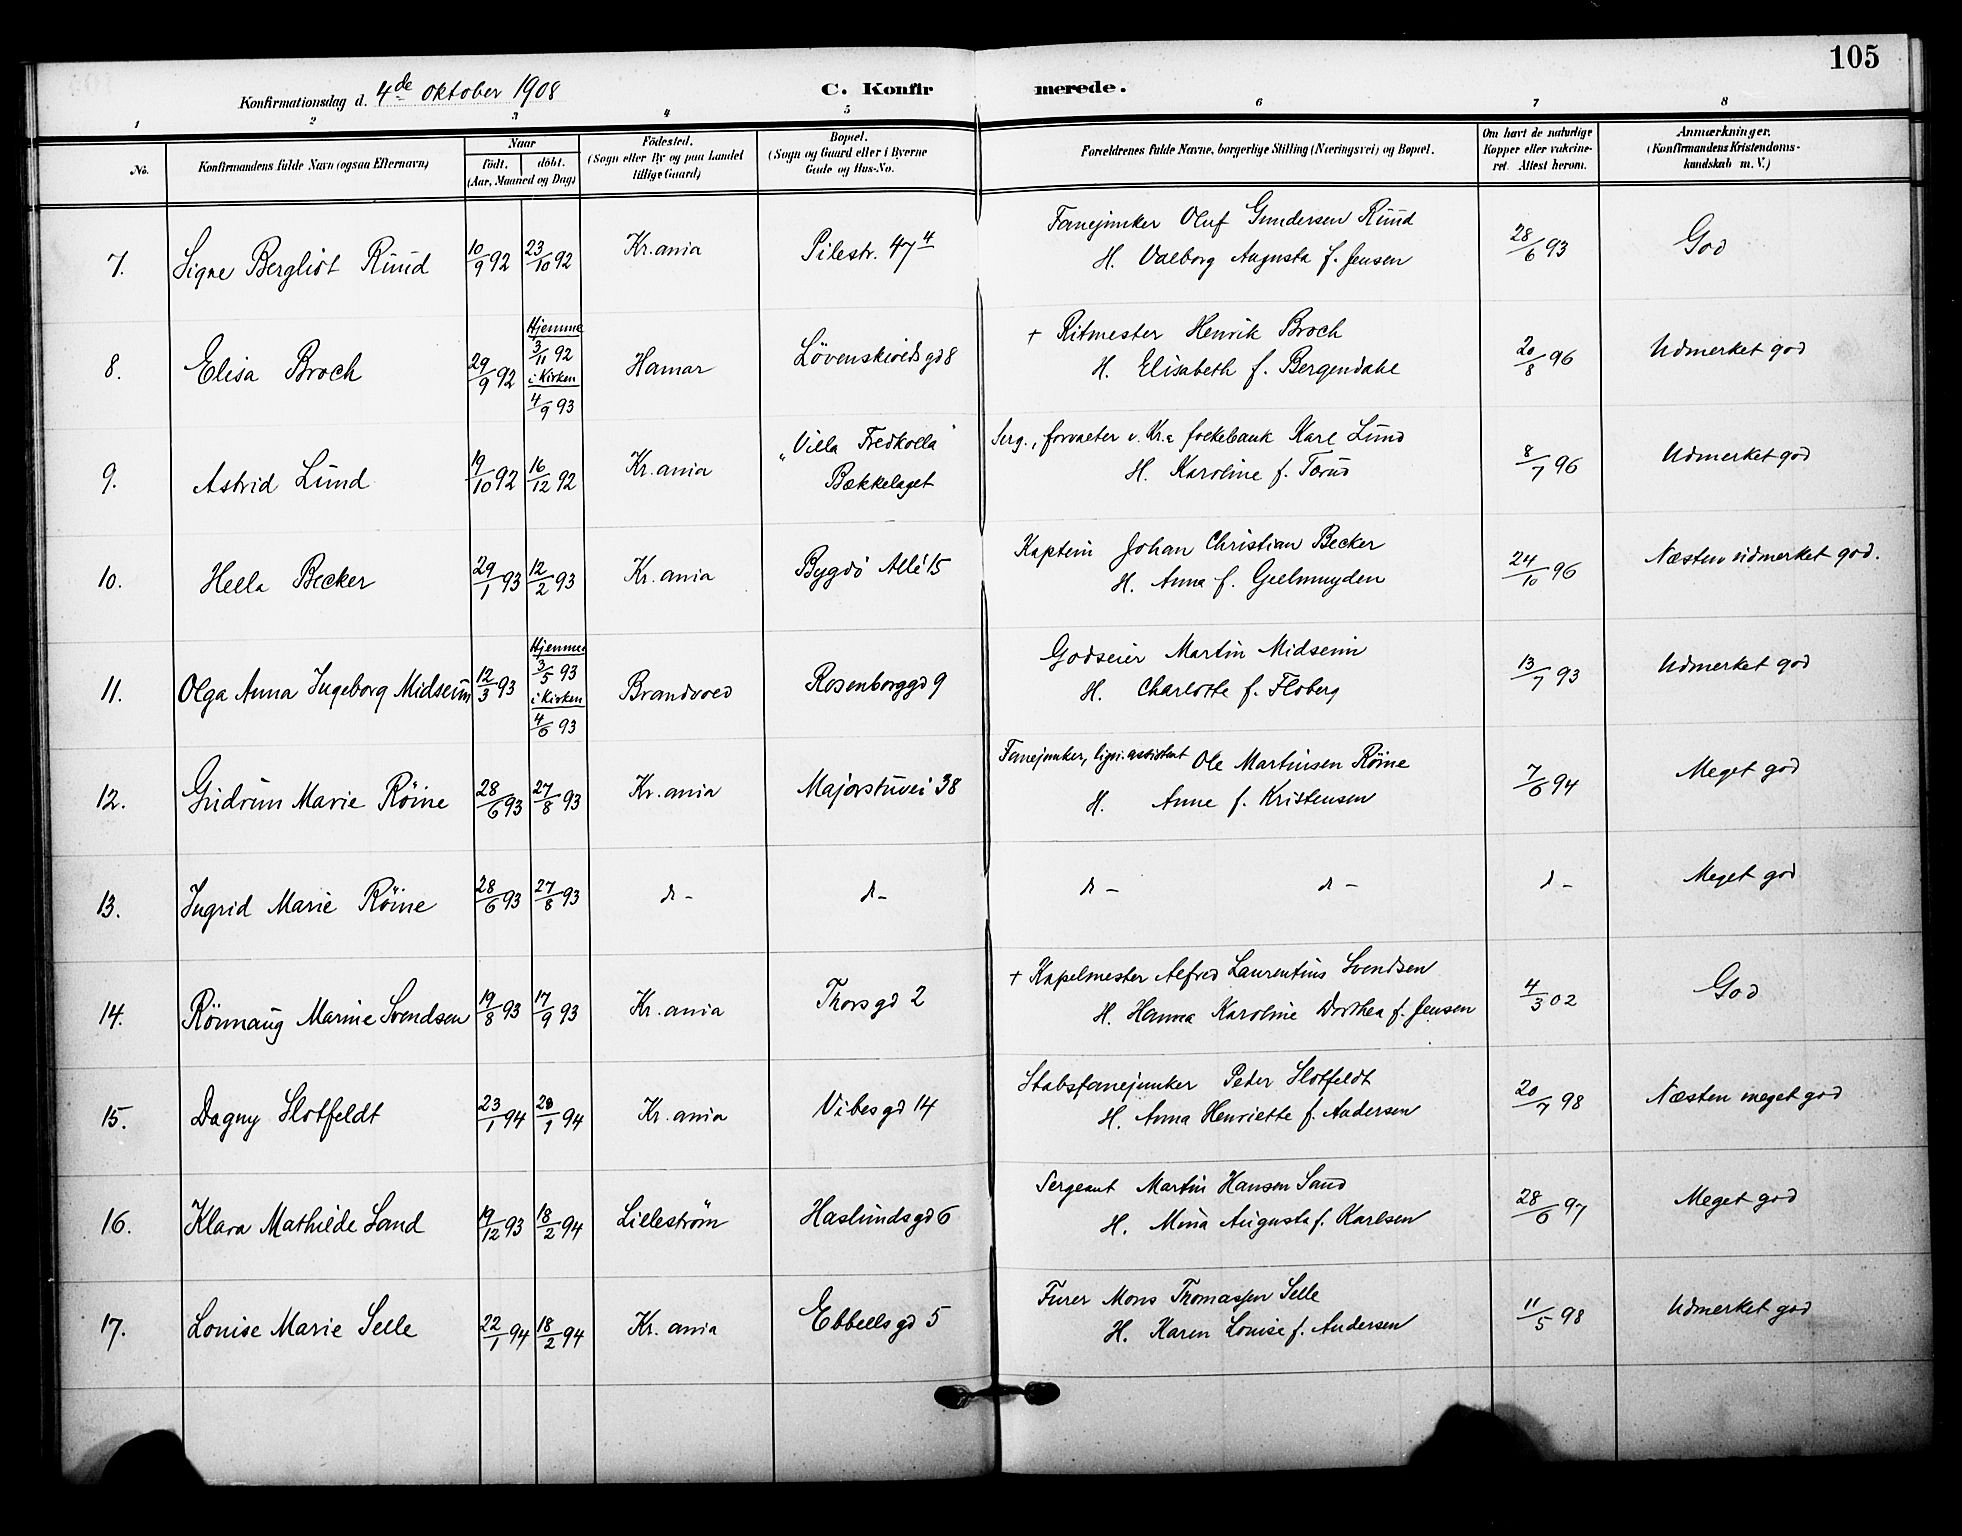 105
Konfirmationsdag d. 4de Oktober 1908
C. Konfirmerede.
1 2 3 4 5 6 7 8
No.
Konfirmandens fulde Navn (ogsaa Efternavn)
Naar
födt. döbt.
(Aar, Maaned og Dag)
Födested.
(Sogn eller By og paa Landet
tillige Gaard)
Bopæl.
(Sogn og Gaard eller i Byerne
Gade og Hus-No.
Forældrenes fulde Navne, borgerlige Stilling (Næringsvei) og Bopæl.
Om havt de naturlige
Kopper eller vakcine-
ret. Attest herom.
Anmærkninger.
(Konfirmandens Kristendoms-
kundskab m. V.)
7. Signe Bergliot Ruud 10/9 92 23/10 92 Kr.ania Pilestr. 47 4
Fanejunker Oluf Gundersen Ruud
H. Valborg Augusta f. Jensen
28/6 93 God
8. Elisa Broch 29/9 92
Hjemme
3/11 92
i Kirken
4/9 93
Hamar Løvenskioldsgd 8
+ Ritmester Henrik Broch
H. Elisabeth f. Bergendahl
20/8 96 Udmerket god
9. Astrid Lund 19/10 92 16/12 92 Kr.ania
"Villa Fredkolla"
Bækkelaget
Serg., forvalter v. Kr.a folkebank Karl Lund
H. Karoline f. Torud
8/7 96 Udmerket god
10. Hella Becker 29/1 93 12/2 93 Kr.ania Bygdö Allé 15
Kaptein Johan Christian Becker
H. Anna f. Geelmuyden
24/10 96 Næsten udmerket god.
11. Olga Anna Ingeborg Midseim 12/3 93
Hjemme
3/5 93
i Kirken
4/6 93
Brandvold Rosenborggd 9
Godseier Martin Midseim
H. Charlotte f. Floberg
13/7 93 Udmerket god
12. Gudrun Marie Röine 28/6 93 27/8 93 Kr.ania Majorstuvei 38
Fanejunker, lign.assistent Ole Martinsen Röine
H. Anne f. Kristensen
7/6 94 Meget god
13. Ingrid Marie Röine 28/6 93 27/8 93 d- d- d- d- d- Meget god
14. Rönnaug Marine Svendsen 19/8 93 17/9 93 Kr.ania Thorsgd 2
+ Kapelmester Alfred Laurentius Svendsen
H. Hanna Karoline Dorthea f. Jensen
4/3 02 God
15. Dagny Slotfeldt 23/1 94 /1 94 Kr.ania Vibesgd 14
Stabsfanejunker Peder Slotfeldt
H. Anna Henriette f. Andersen
20/7 98 Næsten meget god
16. Klara Mathilde Sand 19/12 93 18/2 94 Lilleström Haslundsgd 6
Sergeant Martin Hanson Sand
H. Mina Augusta f. Karlsen
28/6 97 Meget god
17. Louise Marie Selle 22/1 94 18/2 94 Kr.ania Ebbellsgd 5
Furer Mons Thomassen Selle
H. Karen Louise f. Andersen
11/5 98 Udmerket god